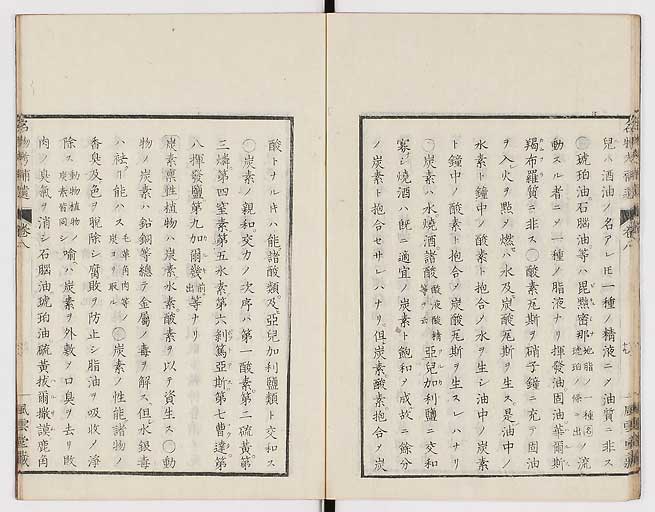 兒ハ酒油ノ名アレ𪜈一種ノ精液ニノ油質ニ非ス
琥珀油石腦油等ハ毘㸃密那地脂ノ一種 琥珀ノ條ニ出流
動スル者ニノ一種ノ脂液ナリ揮發油固油華爾斯
羯布羅質ニ非ス○酸素瓦斯ヲ硝子鐘ニ充テ固油
ヲ入火ヲ㸃メ燃ハ水及炭酸瓦斯ヲ生ス是油中ノ
水素ト鐘中ノ酸素ト抱合ノ水ヲ生シ油中ノ炭素
ト鐘中ノ酸素ト抱合メ炭酸瓦斯ヲ生スレハナリ
○炭素ハ水燒酒諸酸酸液酸精等ヲ云亞兒加利鹽ニ交和
寡シ燒酒ハ既ニ適宜ノ炭素ト飽和ノ成故ニ餘分
ノ炭素ト抱合セサレハナリ但炭素酸素抱合ノ炭
名物考補遺 卷八 風雲堂藏
酸トナル𪜈ハ能諸酸類及亞兒加利鹽類ト交和ス
○炭素ノ親和交力ノ次序ハ第一酸素第二硫黄第
三燐第四窒素第五水素第六剥篤亞斯第七曹達第
八揮發鹽第九加爾幾前出等ナリ
炭素禀性植物ハ炭素水素酸素ヲ以テ資生ス○動
物ノ炭素ハ鉛銅等總テ金屬ノ毒ヲ解ス但水銀毒
ハ祛ヿ能ハス毛革角肉等炭コヲ取ル○炭素ノ性能諸物ノ
香臭及色ヲ脱除シ腐敗ヲ防止シ脂油ヲ吸收ノ淨
除ス動物植物ノ炭素皆同シ喩ハ炭素ヲ外敷ノ口臭ヲ去リ敗
肉ノ臭氣ヲ消シ石腦油琥珀油硫黄拔爾撒謨鹿角
名物考補遺 卷八 風雲堂藏